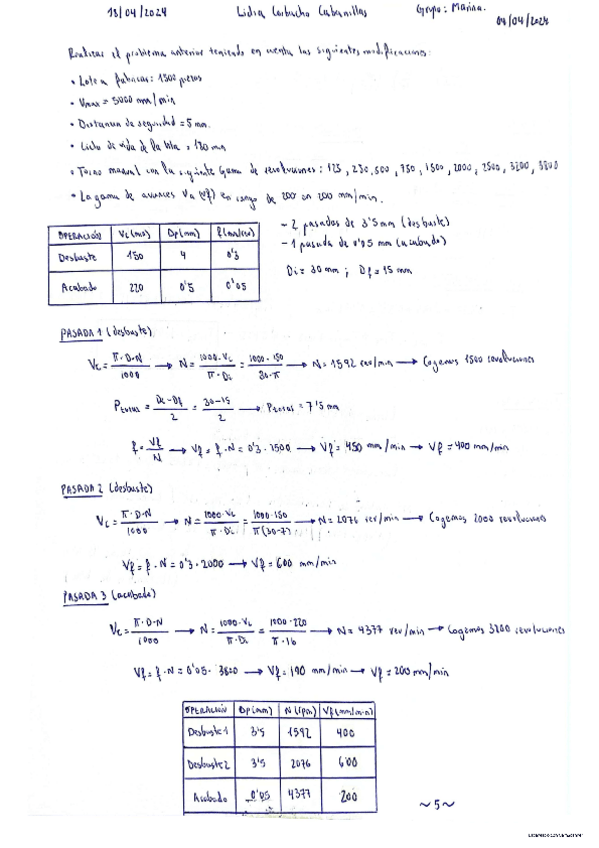 18/04/2024 Lidia Corbacho Cabanillas Grupo: Marina.
04/04/2024
Realizar el problema anterior teniendo en cuenta las siguientes modificaciones:
• Lote a fabricar: 1500 piezas
• Vmax = 5000 mm/min
• Distancia de seguridad = 5 mm.
• Ciclo de vida de la = 180 min
• Torno manual con la siguiente Gama de revoluciones: 125, 250, 500, 750, 1500, 2000, 2500, 3200, 3800
• La gama de avances va (Vf) en rango de 200 en 200 mm/min.
OPERACIÓN Vc (m/s) Dp (mm) f (mm/rev)
Desbaste 150 4 0'3
Acabado 220 0'5 0'05
- 2 pasadas de 3'5 mm (desbaste)
- 1 pasada de 0'05 mm (acabado)
Di = 30 mm ; Df = 15 mm
PASADA 1 (desbaste)
Vc = π·D·N / 1000 → N = 1000·Vc / π·Di = 1000·150 / 30·π → N = 1592 rev/min → Cogemos 1500 revoluciones
Ptotal = Di-Df / 2 = 30-15 / 2 → Ptotal = 7'5 mm
f = Vf / N → Vf = f·N = 0'3·1500 → Vf = 450 mm/min → Vf = 400 mm/min
PASADA 2 (desbaste)
Vc = π·D·N / 1000 → N = 1000·Vc / π·Di = 1000·150 / π(30-7) → N = 2076 rev/min → Cogemos 2000 revoluciones
Vf = f·N = 0'3·2000 → Vf = 600 mm/min
PASADA 3 (acabado)
Vc = π·D·N / 1000 → N = 1000·Vc / π·Di = 1000·220 / π·16 → N = 4377 rev/min → Cogemos 3800 revoluciones
Vf = f·N = 0'05·3800 → Vf = 190 mm/min → Vf = 200 mm/min
OPERACIÓN Dp (mm) N (rpm) Vf (mm/min)
Desbaste 1 3'5 1592 400
Desbaste 2 3'5 2076 600
Acabado 0'05 4377 200
~5~